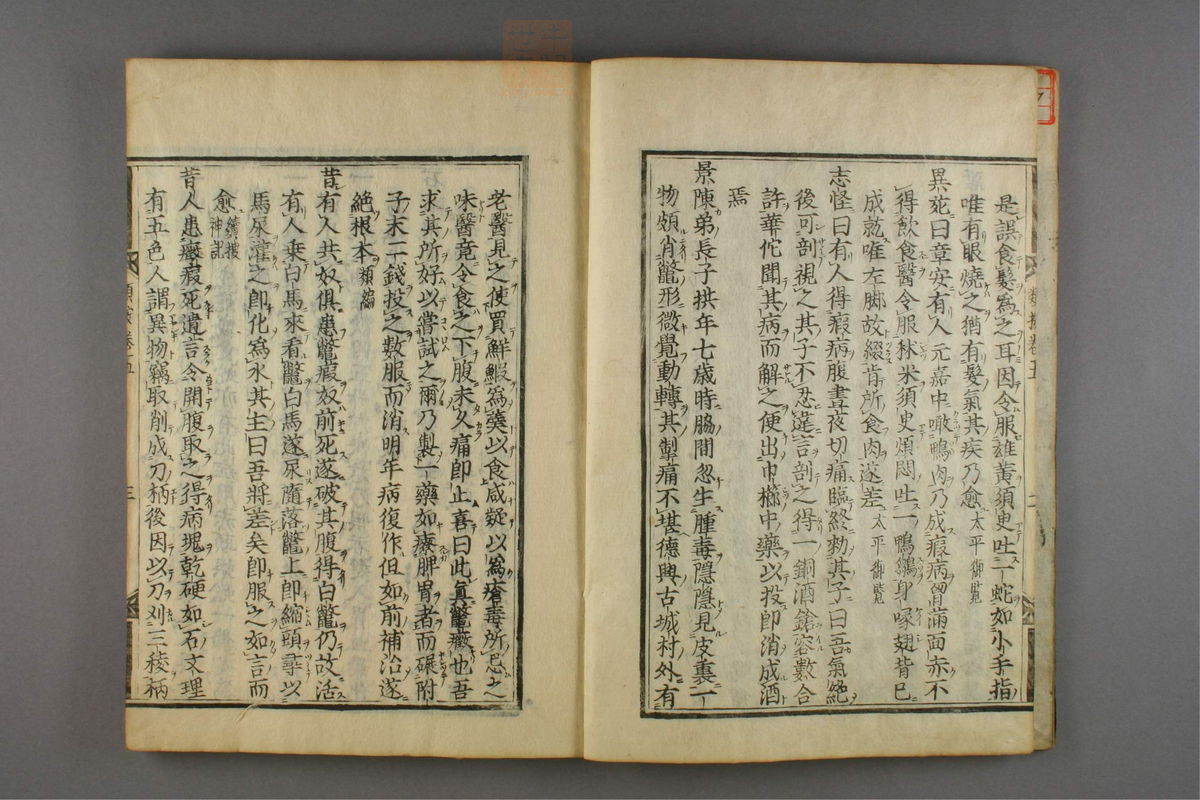 是誤食髮爲之耳因令服雄黃須臾吐一蛇如小手指
唯有眼燒之猶有髮氣其疾乃愈太平御覽
異苑曰章安有人元嘉中噉鴨肉乃成瘕病胷滿面赤不
得飮食醫令服秫米須臾煩悶吐一鴨鶵身喙翅皆已
成就唯左脚故綴昔所食肉遂差太平御覽
志怪曰有人得瘕病腹晝夜切痛臨終勑其子曰吾氣絶
後可剖視之其子不忍違言剖之得一銅酒鎗容數合
許華佗聞其病而解之便出巾櫛中藥以投卽消成酒
焉
景陳弟長子拱年七歲時脇間忽生腫毒隱隱見皮裏一
物頗肖鼈形微覺動轉其掣痛不堪德興古城村外有
老醫見之使買鮮鰕爲羹以食咸疑以爲瘡毒所忌之
味醫竟令食之下腹未久痛卽止喜曰此眞鼈癥也吾
求其所好以嘗試之爾乃製一藥如療脾胃者而碾附
子末二錢投之數服而消明年病復作但如前補治遂
絶根本類編
昔有人共奴俱患鼈瘕奴前死遂破其腹得白鼈仍故活
有人乘白馬來看鼈白馬遂尿隨落鼈上卽縮頭尋以
馬尿灌之卽化爲水其主曰吾將差矣卽服之如言而
愈續搜神記
昔人患癥瘕死遺言令開腹取之得病塊乾硬如石文理
有五色人謂異物竊取削成刀柄後因以刀刈三稜柄